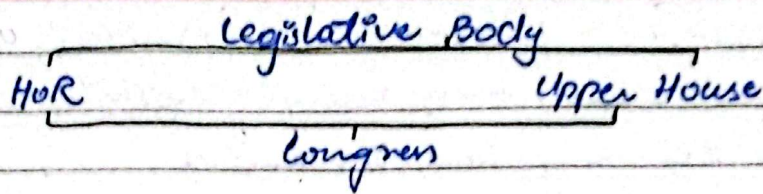 Legislative Body
HoR Upper House
Congress